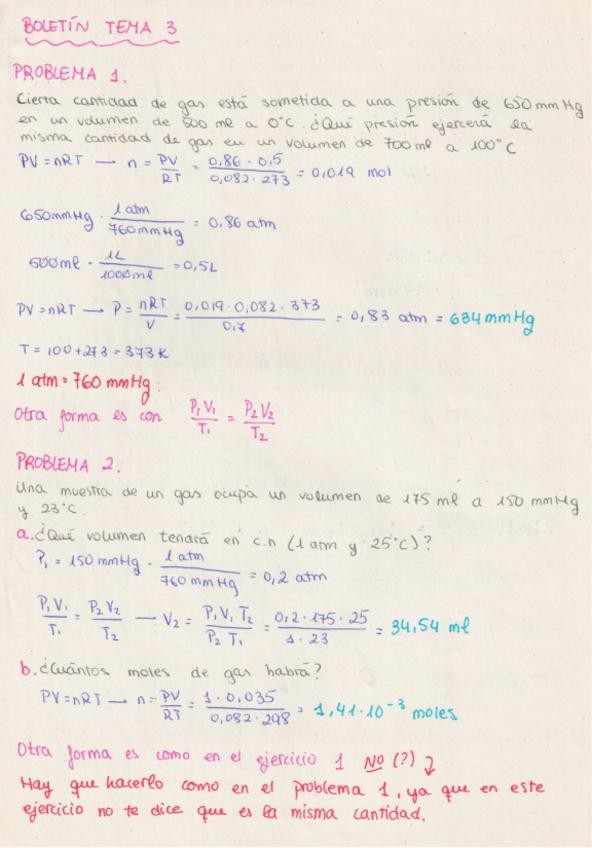 BOLETÍN TEMA 3
PROBLEMA 1.
Cierta cantidad de gas está sometida a una presión de 650 mmHg
en un volumen de 500 ml a 0°C. ¿Qué presión ejercerá la
misma cantidad de gas en un volumen de 700 ml a 100°C
PV = nRT → n = PV/RT = 0,86 · 0,5 / 0,082 · 273 = 0,019 mol
650 mmHg · 1 atm / 760 mmHg = 0,86 atm
500 ml · 1L / 1000 ml = 0,5L
PV = nRT → P = nRT/V = 0,019 · 0,082 · 373 / 0,7 = 0,83 atm = 634 mmHg
T = 100 + 273 = 373 K
1 atm = 760 mmHg
Otra forma es con P₁V₁/T₁ = P₂V₂/T₂
PROBLEMA 2.
Una muestra de un gas ocupa un volumen de 175 ml a 150 mmHg
y 23°C.
a. ¿Qué volumen tendrá en c.n (1 atm y 25°C)?
P₁ = 150 mmHg · 1 atm / 760 mmHg = 0,2 atm
P₁V₁/T₁ = P₂V₂/T₂ — V₂ = P₁V₁T₂/P₂T₁ = 0,2 · 175 · 25 / 1 · 23 = 34,54 ml
b. ¿Cuántos moles de gas habrá?
PV = nRT → n = PV/RT = 1 · 0,035 / 0,082 · 298 = 1,41 · 10⁻³ moles
Otra forma es como en el ejercicio 1 NO (?) ↓
Hay que hacerlo como en el problema 1, ya que en este
ejercicio no te dice que es la misma cantidad.